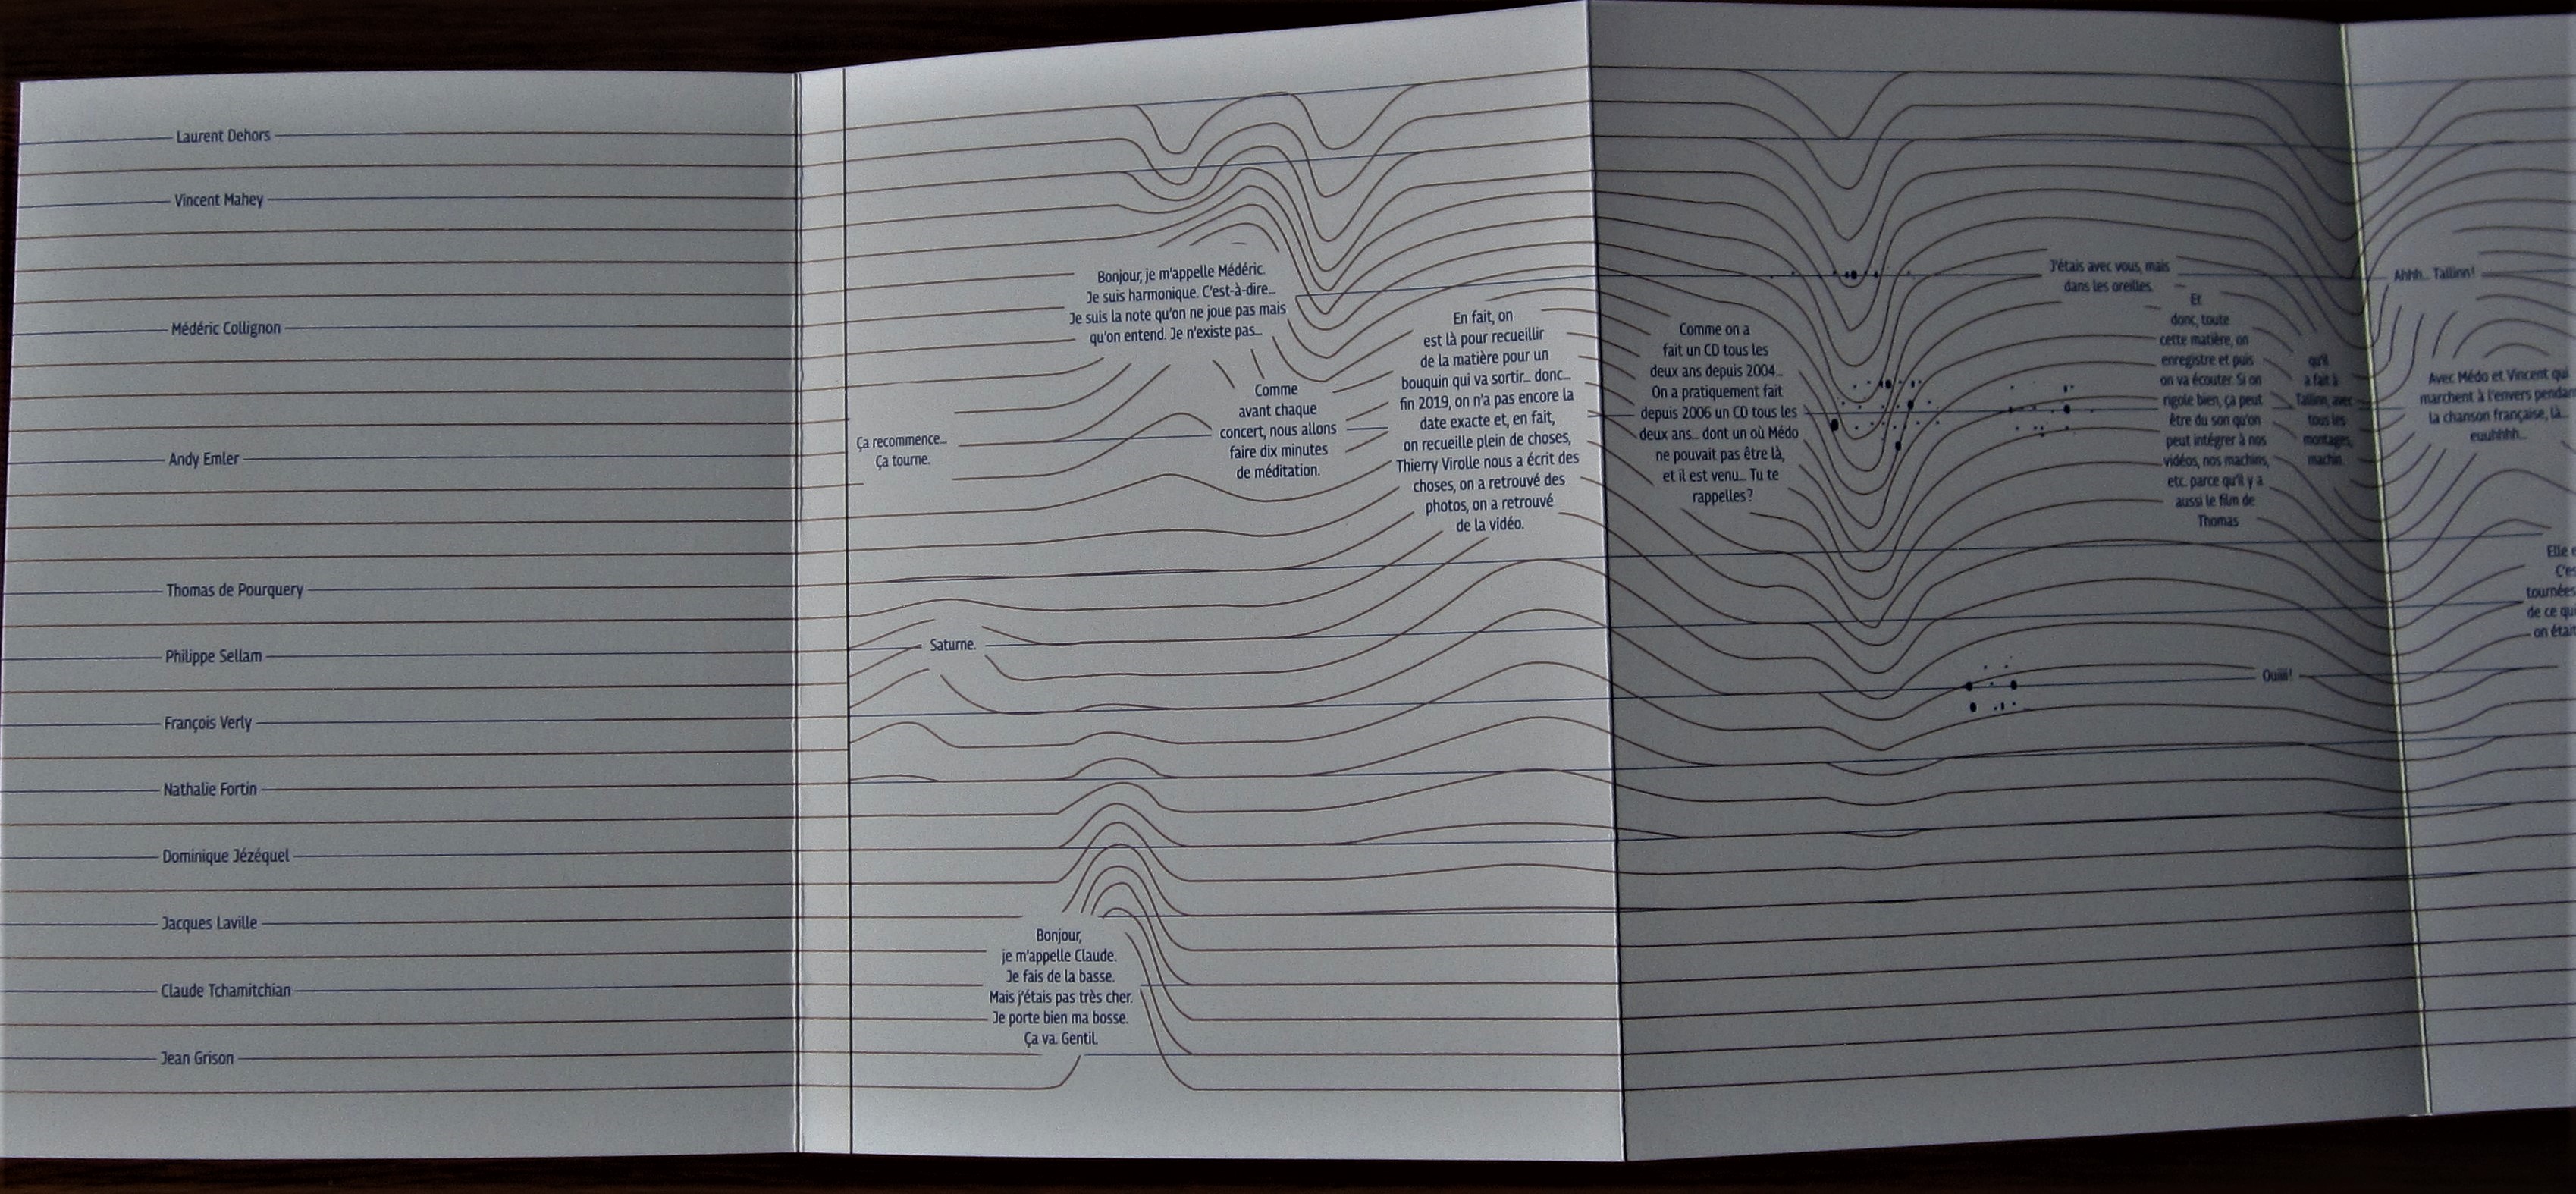 Laurent Dehors
Vincent Mahey
Médéric Collignon
Andy Emler
Thomas de Pourquery
Philippe Sellam
François Verly
Nathalie Fortin
Dominique Jézéquel
Jacques Laville
Claude Tchamitchian
Jean Grison
Ça recommence...
Ça tourne.
Saturne.
Bonjour, je m'appelle Médéric.
Je suis harmonique. C'est-à-dire...
Je suis la note qu'on ne joue pas mais
qu'on entend. Je n'existe pas...
Bonjour,
je m'appelle Claude.
Je fais de la basse.
Mais j'étais pas très cher.
Je porte bien ma bosse.
Ça va. Gentil.
Comme
avant chaque
concert, nous allons
faire dix minutes
de méditation.
En fait, on
est là pour recueillir
de la matière pour un
bouquin qui va sortir... donc...
fin 2019, on n'a pas encore la
date exacte et, en fait,
on recueille plein de choses,
Thierry Virolle nous a écrit des
choses, on a retrouvé des
photos, on a retrouvé
de la vidéo.
Comme on a
fait un CD tous les
deux ans depuis 2004...
On a pratiquement fait
depuis 2006 un CD tous les
deux ans... dont un où Médo
ne pouvait pas être là,
et il est venu... Tu te
rappelles?
J'étais avec vous, mais
dans les oreilles.
Et
donc, toute
cette matière, on
enregistre et puis
on va écouter. Si on
rigole bien, ça peut
être du son qu'on
peut intégrer à nos
vidéos, nos machins,
etc. parce qu'il y a
aussi le film de
Thomas
qu'il
a fait à
Tallinn, avec
tous les
montages,
machin.
Ouiiii!
Ahhh... Tallinn!
Avec Médo et Vincent qui
marchent à l'envers pendan
la chanson française, là...
euuhhhh...
Elle
C'es
tournées
de ce qu
on était